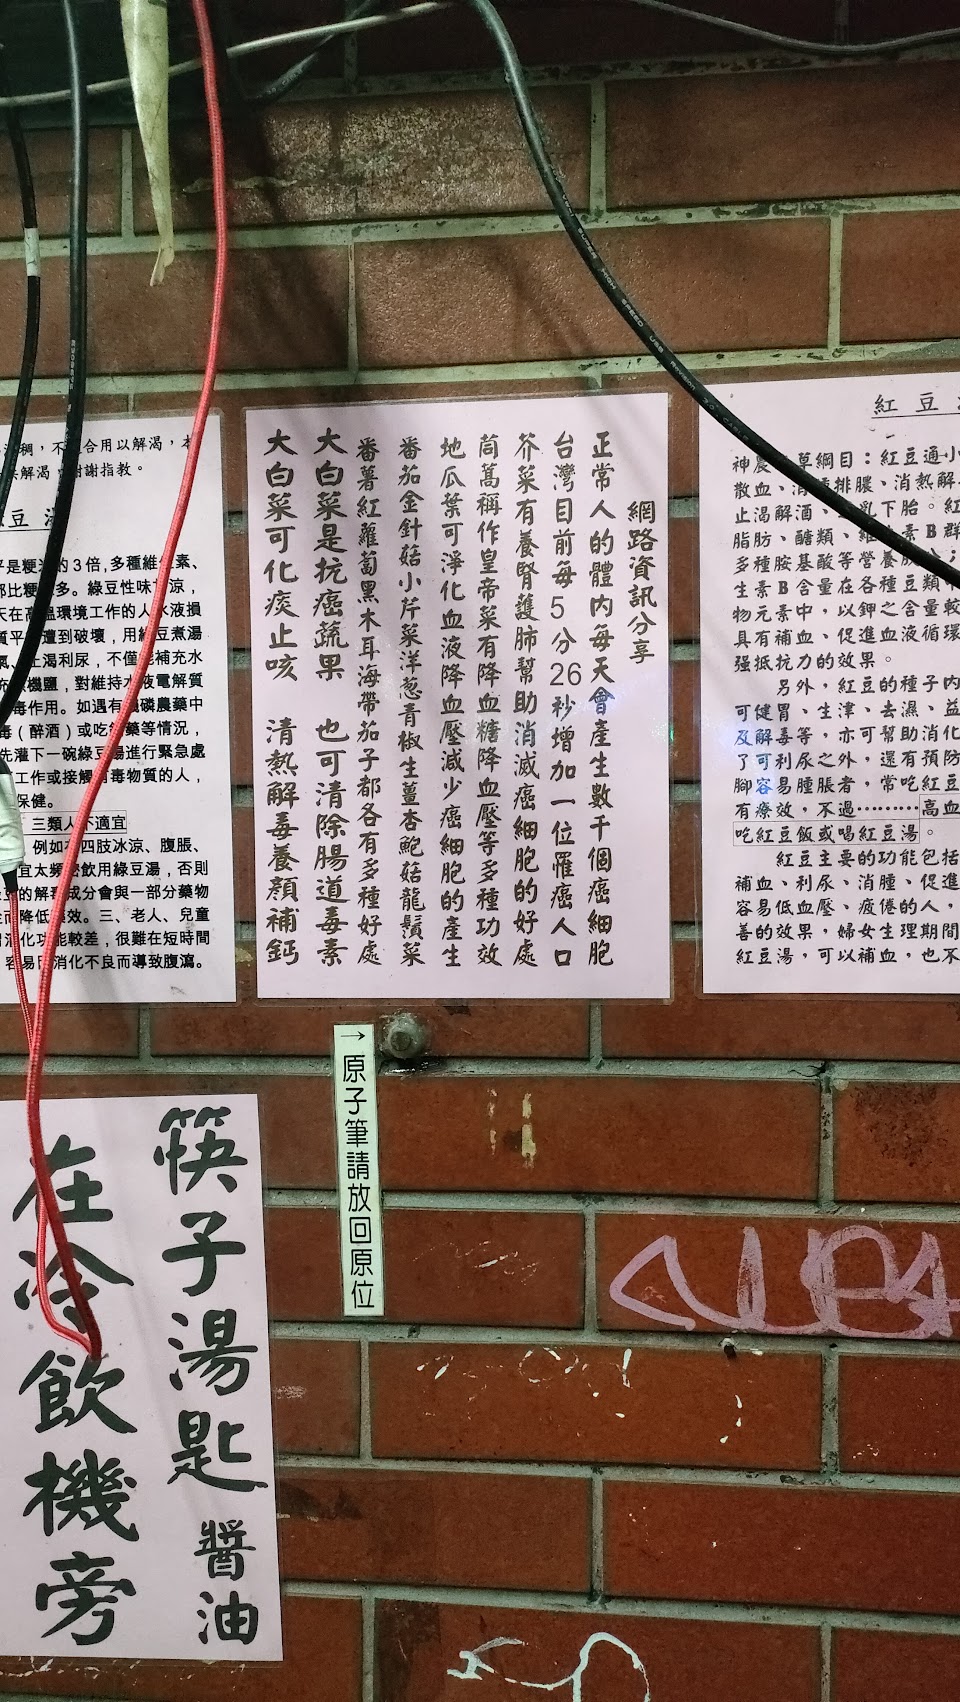 網路資訊分享
正常人的體內每天會產生數千個癌細胞
台灣目前每5分26秒增加一位罹癌人口
芥菜有養腎護肺幫助消滅癌細胞的好處
茼萵稱作皇帝菜有降血糖降血壓等多種功效
地瓜葉可淨化血液降血壓減少癌細胞的產生
番茄金針菇小芹菜洋葱青椒生薑杏鮑菇龍鬚菜
番薯紅蘿蔔黑木耳海帶茄子都各有多種好處
大白菜是抗癌蔬果 也可清除腸道毒素
大白菜可化痰止咳 清熱解毒養顏補鈣
紅豆
神農 草綱目：紅豆通小
散血、消 排膿、消熱解
止渴解酒、 乳下胎。紅
脂肪、醣類、維 素B群
多種胺基酸等營養
生素B含量在各種豆類
物元素中，以鉀之含量較
具有補血、促進血液循環
強抵抗力的效果。
另外，紅豆的種子內
可健胃、生津、去濕、益
及解毒等，亦可幫助消化
了可利尿之外，還有預防
腳容易腫脹者，常吃紅豆
有療效，不過………高血
吃紅豆飯或喝紅豆湯。
紅豆主要的功能包括
補血、利尿、消腫、促進
容易低血壓、疲倦的人，
善的效果，婦女生理期間
紅豆湯，可以補血，也不
稠，不 合用以解渴，本
解渴 謝謝指教。
豆
是粳 的3倍,多種維 素、
都比粳 多。綠豆性味 涼，
天在高溫環境工作的人 水液損
質平 遭到破壞，用綠豆煮湯
氣、止渴利尿，不僅能補充水
充 機鹽，對維持水液電解質
毒作用。如遇有 磷農藥中
毒（醉酒）或吃 藥等情況，
先灌下一碗綠豆湯進行緊急處
工作或接觸有毒物質的人，
保健。
三類人不適宜
例如 四肢冰涼、腹脹、
宜太頻密飲用綠豆湯，否則
的解毒成分會與一部分藥物
而降低 效。三、老人、兒童
消化功能較差，很難在短時間
容易 消化不良而導致腹瀉。
→原子筆請放回原位
筷子湯匙 醬油
在冷飲機旁